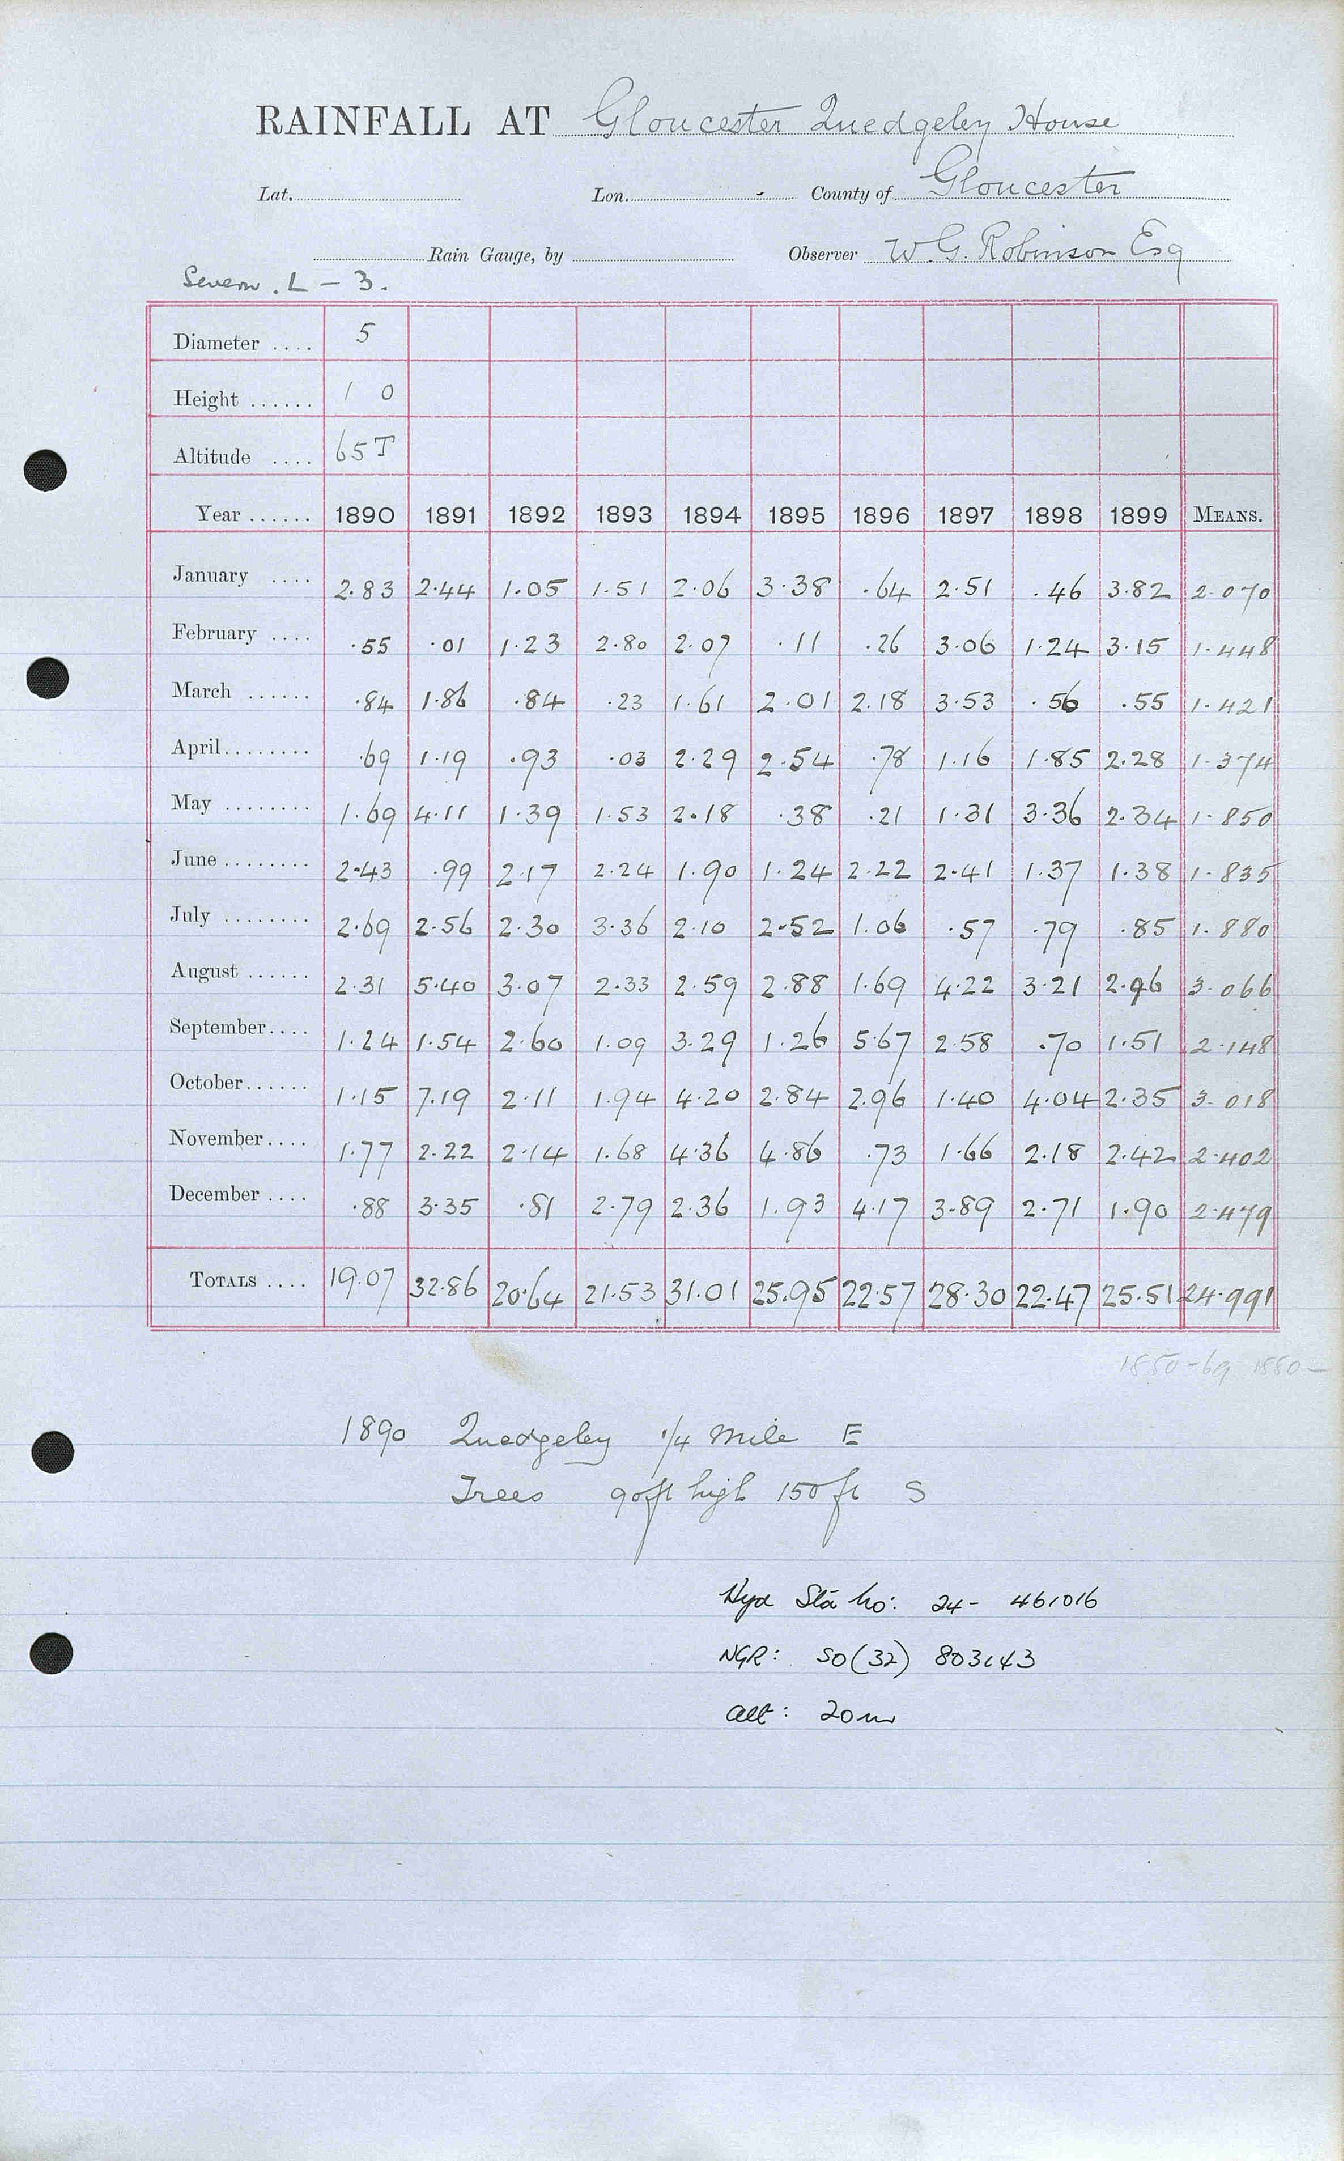 RAINFALL AT Gloucester Quedgeley House
Lat. Lon. County of Gloucester
Rain Gauge, by Observer W. G. Robinson Esq
Severn. L - 3.
Diameter .... 5
Height ...... 1 0
Altitude .... 65 T
Year ...... 1890 1891 1892 1893 1894 1895 1896 1897 1898 1899 MEANS.
January .... 2.83 2.44 1.05 1.51 2.06 3.38 .64 2.51 .46 3.82 2.070
February .... .55 .01 1.23 2.80 2.07 .11 .26 3.06 1.24 3.15 1.448
March ...... .84 1.86 .84 .23 1.61 2.01 2.18 3.53 .56 .55 1.421
April........ .69 1.19 .93 .03 2.29 2.54 .78 1.16 1.85 2.28 1.374
May ........ 1.69 4.11 1.39 1.53 2.18 .38 .21 1.31 3.36 2.34 1.850
June ........ 2.43 .99 2.17 2.24 1.90 1.24 2.22 2.41 1.37 1.38 1.835
July ........ 2.69 2.56 2.30 3.36 2.10 2.52 1.06 .57 .79 .85 1.880
August ...... 2.31 5.40 3.07 2.33 2.59 2.88 1.69 4.22 3.21 2.96 3.066
September.... 1.24 1.54 2.60 1.09 3.29 1.26 5.67 2.58 .70 1.51 2.148
October...... 1.15 7.19 2.11 1.94 4.20 2.84 2.96 1.40 4.04 2.35 3.018
November.... 1.77 2.22 2.14 1.68 4.36 4.86 .73 1.66 2.18 2.42 2.402
December .... .88 3.35 .81 2.79 2.36 1.93 4.17 3.89 2.71 1.90 2.479
TOTALS .... 19.07 32.86 20.64 21.53 31.01 25.95 22.57 28.30 22.47 25.51 24.991
1890 Quedgeley 1/4 Mile E
Trees 90ft high 150 ft S
Hyd Sta No: 24- 461016
NGR: SO(32) 803143
alt: 20m